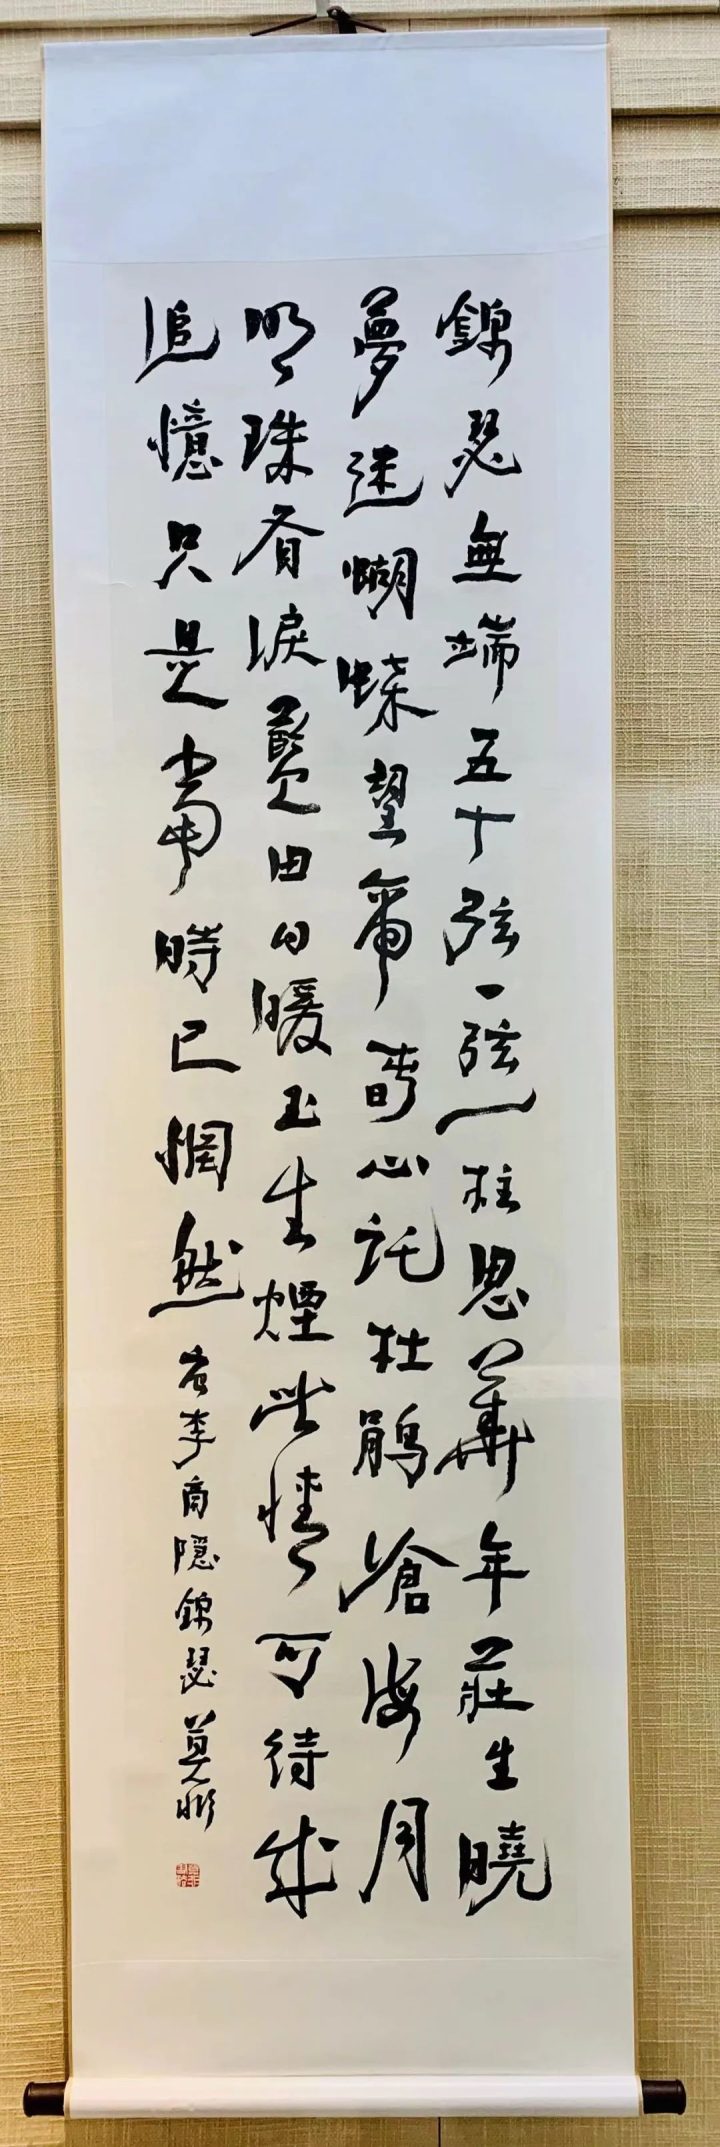 錦瑟無端五十弦一弦一柱思華年莊生曉
夢迷蝴蝶望帝春心託杜鵑滄海月
明珠有淚藍田日暖玉生煙此情可待成
追憶只是當時已惘然 李商隱錦瑟 莫